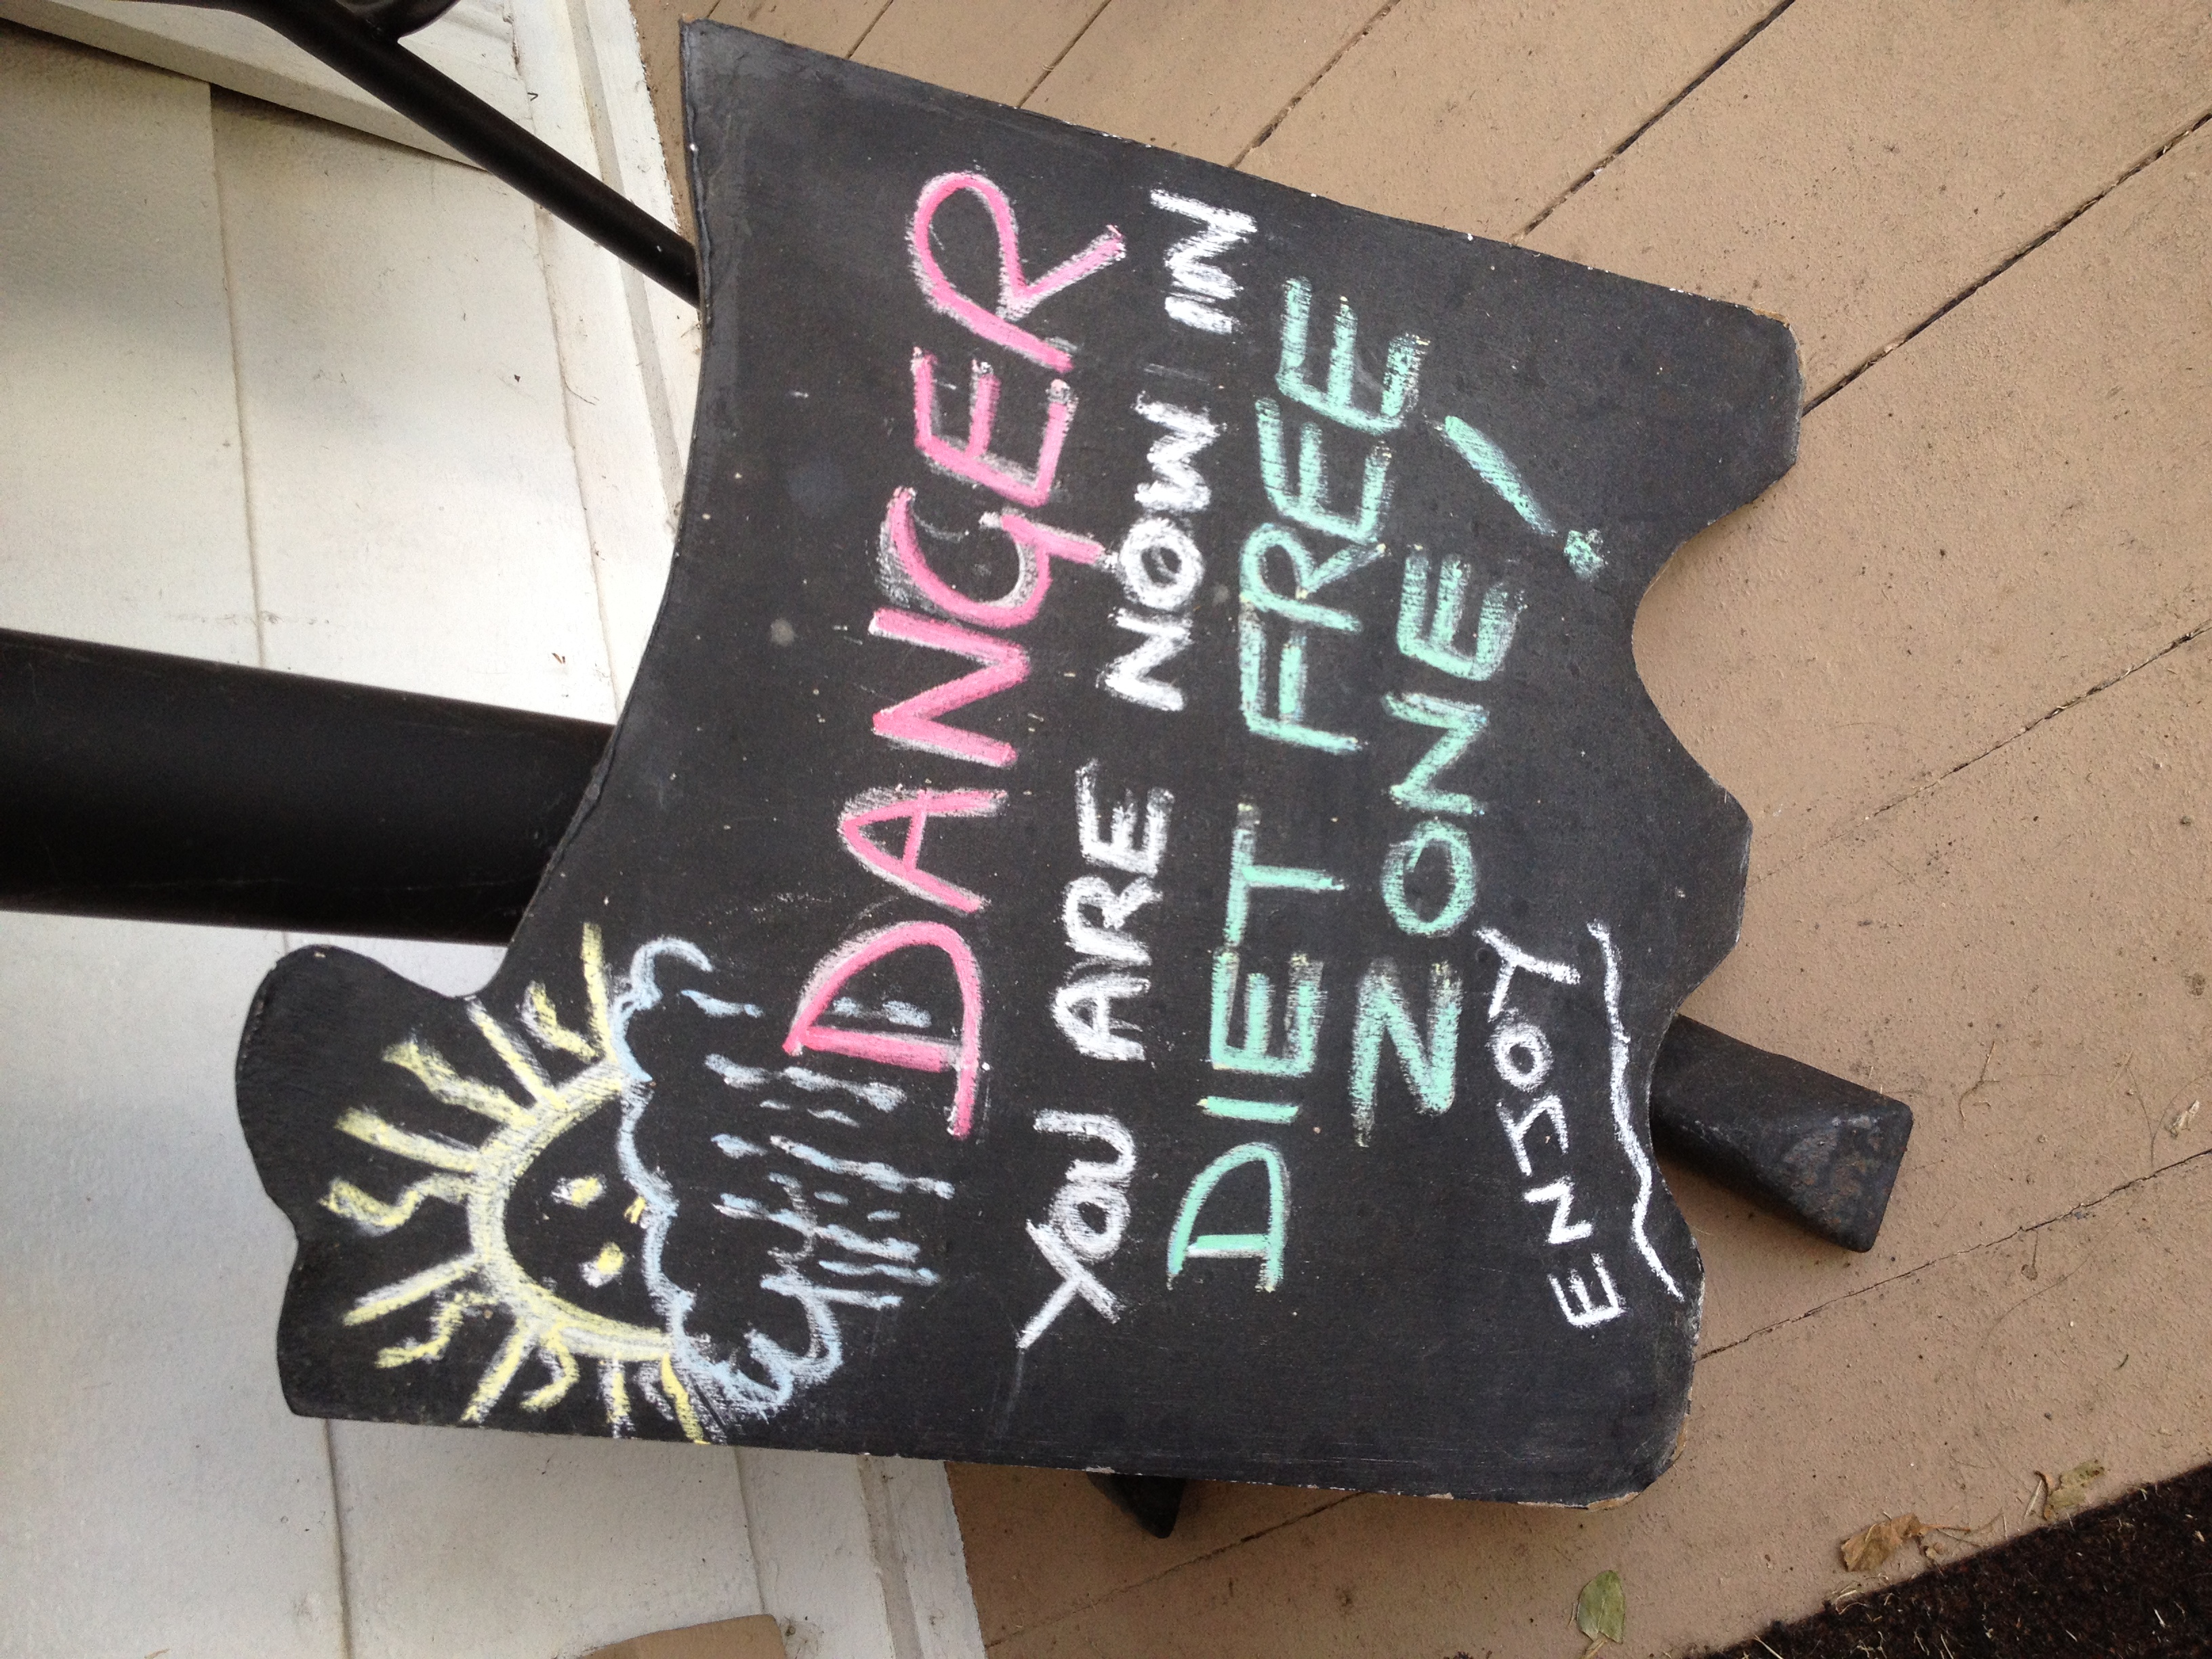 DANGER
YOU ARE NOW IN
DIET FREE
ZONE!
ENJOY